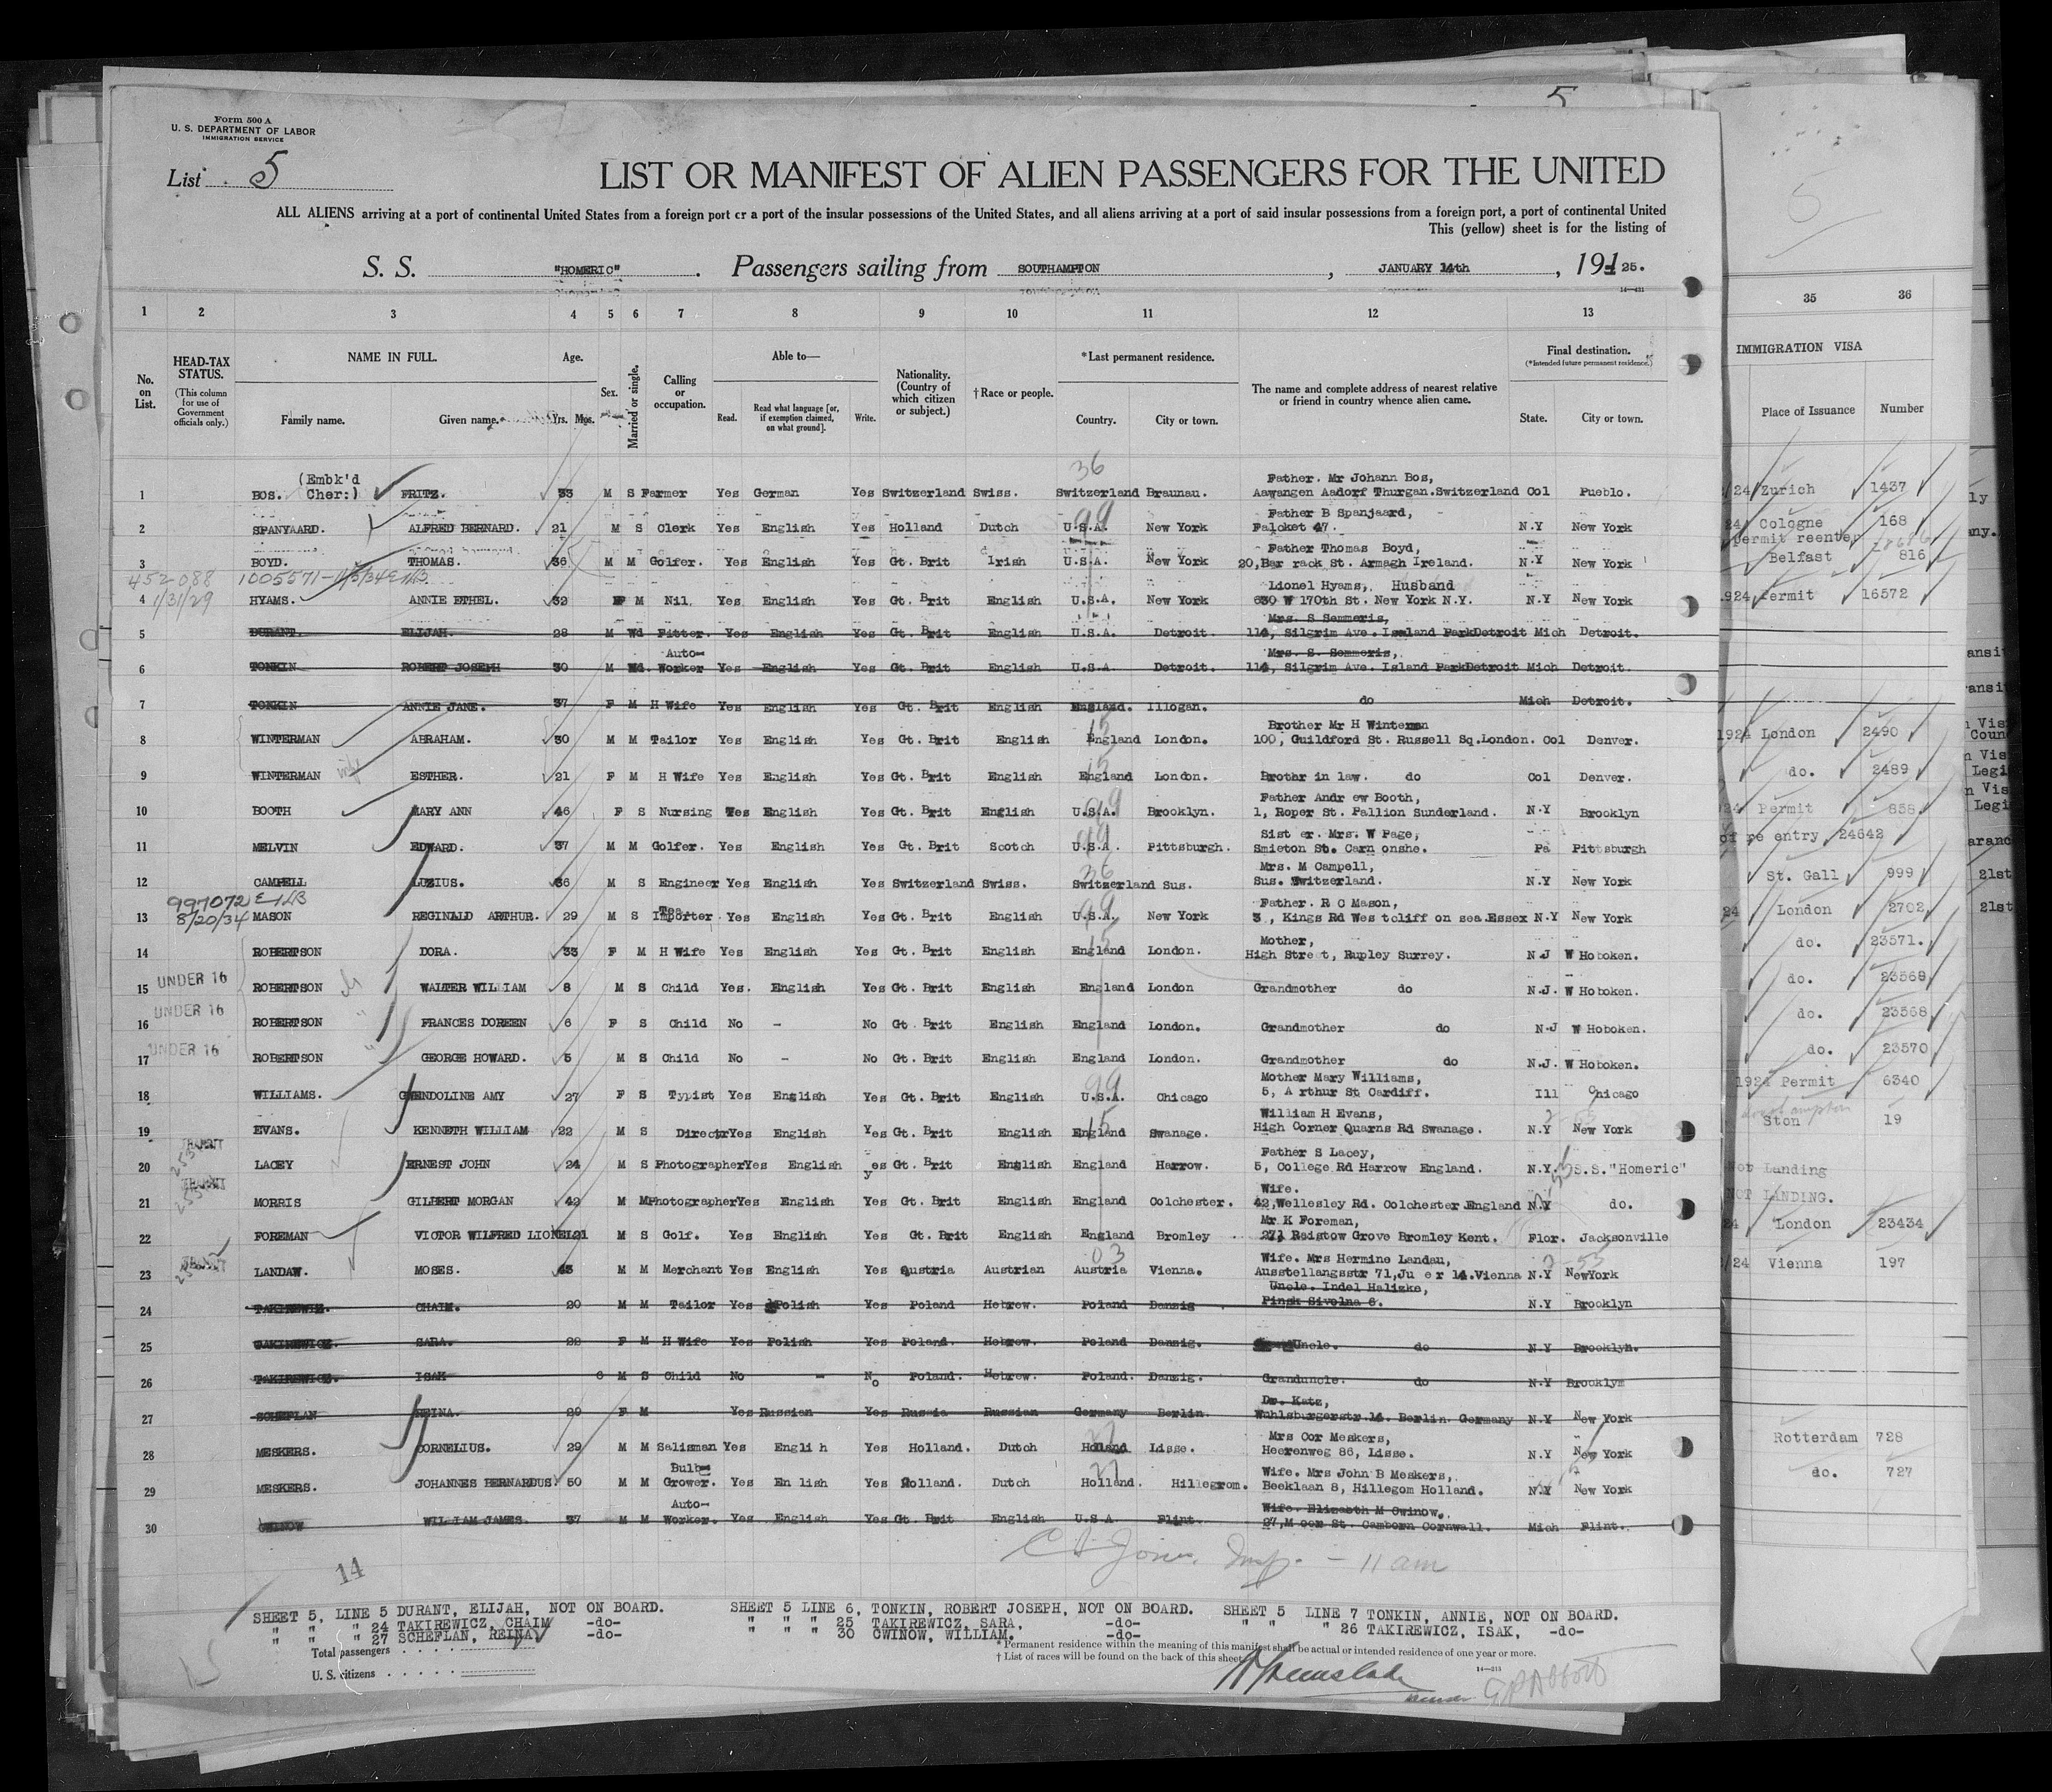 5
Form 500 A
U. S. DEPARTMENT OF LABOR
IMMIGRATION SERVICE
List 5
LIST OR MANIFEST OF ALIEN PASSENGERS FOR THE UNITED
ALL ALIENS arriving at a port of continental United States from a foreign port or a port of the insular possessions of the United States, and all aliens arriving at a port of said insular possessions from a foreign port, a port of continental United
This (yellow) sheet is for the listing of
S. S. "HOMERIC". Passengers sailing from SOUTHAMPTON, JANUARY 14th, 191 25.
1 2 3 4 5 6 7 8 9 10 11 12 13 35 36
No. on List.
HEAD-TAX STATUS. (This column for use of Government officials only.)
NAME IN FULL. Family name. Given name.
Age. Yrs. Mos.
Sex.
Married or single.
Calling or occupation.
Able to— Read. Read what language [or, if exemption claimed, on what ground]. Write.
Nationality. (Country of which citizen or subject.)
† Race or people.
*Last permanent residence. Country. City or town.
The name and complete address of nearest relative or friend in country whence alien came.
Final destination. (*Intended future permanent residence.) State. City or town.
IMMIGRATION VISA Place of Issuance Number
(Embk'd Father. Mr Johann Bos,
1 BOS. Cher:) FRITZ. 33 M S Farmer Yes German Yes Switzerland Swiss. Switzerland Braunau. Aawangen Aadorf Thurgan.Switzerland Col Pueblo. Zurich 1437
Father B Spanjaard,
2 SPANYAARD. ALFRED BERNARD. 21 M S Clerk Yes English Yes Holland Dutch U.S.A. New York Falcket 47. N.Y New York Cologne 168
Father Thomas Boyd, permit reenter
3 BOYD. THOMAS. 36 M M Golfer. Yes English Yes Gt. Brit Irish U.S.A. New York 20,Bar rack St. Armagh Ireland. N.Y New York Belfast 816
452088 1005571
1/31/29 Lionel Hyams, Husband
4 HYAMS. ANNIE ETHEL. 32 F M Nil. Yes English Yes Gt. Brit English U.S.A. New York 630 W 170th St. New York N.Y. N.Y New York Permit 16572
Mrs. S Semmeris,
5 DURANT. ELIJAH. 28 M Wd Fitter. Yes English Yes Gt. Brit English U.S.A. Detroit. 114, Silgrim Ave. Island ParkDetroit Mich Detroit.
Auto- Mrs. S. Semmeris,
6 TONKIN ROBERT JOSEPH 30 M Wd. Worker Yes English Yes Gt. Brit English U.S.A Detroit. 114, Silgrim Ave. Island ParkDetroit Mich Detroit.
7 TONKIN ANNIE JANE. 37 F M H Wife Yes English Yes Gt. Brit English England. Illogan. do Mich Detroit.
Brother Mr H Winterman
8 WINTERMAN ABRAHAM. 30 M M Tailor Yes English Yes Gt. Brit English England London. 100, Guildford St. Russell Sq.London. Col Denver. 1924 London 2490
9 WINTERMAN ESTHER. 21 F M H Wife Yes English Yes Gt. Brit English England London. Brothr in law. do Col Denver. do. 2489
Father Andr ew Booth,
10 BOOTH MARY ANN 46 F S Nursing Yes English Yes Gt. Brit English U.S.A. Brooklyn. 1, Roper St. Pallion Sunderland. N.Y Brooklyn Permit 858
Sist er. Mrs. W Page,
11 MELVIN EDWARD. 37 M M Golfer. Yes English Yes Gt. Brit Scotch U.S.A. Pittsburgh. Smieton St. Carn onshe. Pa Pittsburgh of re entry 24642
Mrs. M Campell,
12 CAMPELL LUZIUS. 36 M S Engineer Yes English Yes Switzerland Swiss. Switzerland Sus. Sus. Switzerland. N.Y New York St. Gall 999
997072 Tea Father. R C Mason,
8/20/34
13 MASON REGINALD ARTHUR. 29 M S Importer Yes English Yes Gt. Brit English U.S.A. New York 3, Kings Rd Wes tcliff on sea.Essex N.Y New York London 2702
Mother,
14 ROBERTSON DORA. 33 F M H Wife Yes English Yes Gt. Brit English England London. High Stree t, Rupley Surrey. N.J W Hoboken. do. 23571.
15 UNDER 16 ROBERTSON WALTER WILLIAM 8 M S Child Yes. English Yes Gt. Brit English England London Grandmother do N.J. W Hoboken. do. 23568
16 UNDER 16 ROBERTSON FRANCES DOREEN 6 F S Child No - No Gt. Brit English England London. Grandmother do N.J W Hoboken. do. 23568
17 UNDER 16 ROBERTSON GEORGE HOWARD. 5 M S Child No - No Gt. Brit English England London. Grandmother do N.J. W Hoboken. do. 23570
Mother Mary Williams,
18 WILLIAMS. GWENDOLINE AMY 27 F S Typist Yes English Yes Gt. Brit English U.S.A. Chicago 5, A rthur St Cardiff. Ill Chicago 1924 Permit 6340
William H Evans,
19 EVANS. KENNETH WILLIAM 22 M S Directr Yes English Yes Gt. Brit English England Swanage. High Corner Quarns Rd Swanage. N.Y New York Ston 19
TRANSIT Father S Lacey,
20 LACEY ERNEST JOHN 24 M S Photographer Yes English yes Gt. Brit English England Harrow. 5, College Rd Harrow England. N.Y. S.S."Homeric" Not Landing
TRANSIT Wife.
21 MORRIS GILBERT MORGAN 42 M M Photographer Yes English Yes Gt. Brit English England Colchester. 42,Wellesley Rd. Colchester England N.Y do. NOT LANDING.
Mr K Foreman,
22 FOREMAN VICTOR WILFRED LIONEL 21 M S Golf. Yes English Yes Gt. Brit English England Bromley 271 Reistow Grove Bromley Kent. Flor. Jacksonville London 23434
TRANSIT Wife. Mrs Hermine Landau,
23 LANDAW. MOSES. 43 M M Merchant Yes English Yes Qustria Austrian Austria Vienna. Ausstellangsstr 71,Ju e r 14.Vienna N.Y NewYork Vienna 197
Uncle. Indel Halizke,
24 TAKIREWIZ. CHAIM. 20 M M Tailor Yes Polish Yes Poland Hebrew. Poland Danzig Pinsk Sivolna 6. N.Y Brooklyn
25 TAKIREWICZ. SARA. 28 F M H Wife Yes Polish Yes Poland. Hebrew. Poland Danzig. Uncle. do N.Y Brooklyn.
26 TAKIREWICZ. ISAK 6 M S Child No - No Poland. Hebrew. Poland. Danzig. Granduncle. do N.Y Brooklym
Dr. Katz,
27 SCHEFLAN REINA. 29 F M Yes Russian Yes Russia Russian Germany Berlin. Wuhlsburgerstr.14. Berlin. Germany N.Y New York
Mrs Cor Meskers,
28 MESKERS. CORNELIUS. 29 M M Salisman Yes Engli h Yes Holland. Dutch Holland Lisse. Heerenweg 86, Lisse. N.Y New York Rotterdam 728
Bulb Wife. Mrs John B Meskers,
29 MESKERS. JOHANNES BERNARDUS. 50 M M Grower. Yes En lish Yes Holland. Dutch Holland. Hillegrom. Beeklaan 8, Hillegom Holland. N.Y New York do. 727
Auto- Wife. Elizabth M Cwinow.
30 CWINOW WILLIAM JAMES. 37 M M Worker. Yes English Yes Gt. Brit English U.S.A Flint. 27,M oor St. Camborn Cornwall. Mich Flint.
Jones, Insp. - 11 am
14
SHEET 5, LINE 5 DURANT, ELIJAH, NOT ON BOARD. SHEET 5 LINE 6, TONKIN, ROBERT JOSEPH, NOT ON BOARD. SHEET 5 LINE 7 TONKIN, ANNIE, NOT ON BOARD.
" " " 24 TAKIREWICZ, CHAIM -do- " " " 25 TAKIREWICZ, SARA, -do- " " " 26 TAKIREWICZ, ISAK, -do-
" " " 27 SCHEFLAN, REINA -do- " " " 30 CWINOW, WILLIAM. -do-
Total passengers
U. S. citizens
* Permanent residence within the meaning of this manifest shall be actual or intended residence of one year or more.
† List of races will be found on the back of this sheet.